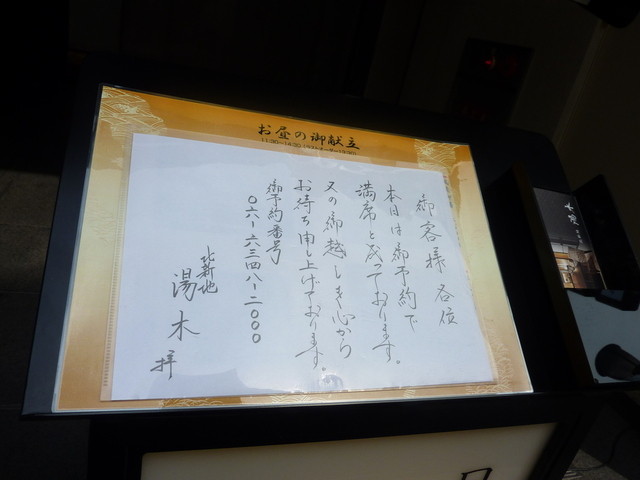 お昼の御献立
御客様各位
本日は御予約で
満席と成っております。
又の御越しを心から
お待ち申し上げております。
御予約番号
〇六ー六三四八ー二〇〇〇
北新地
湯木
拝